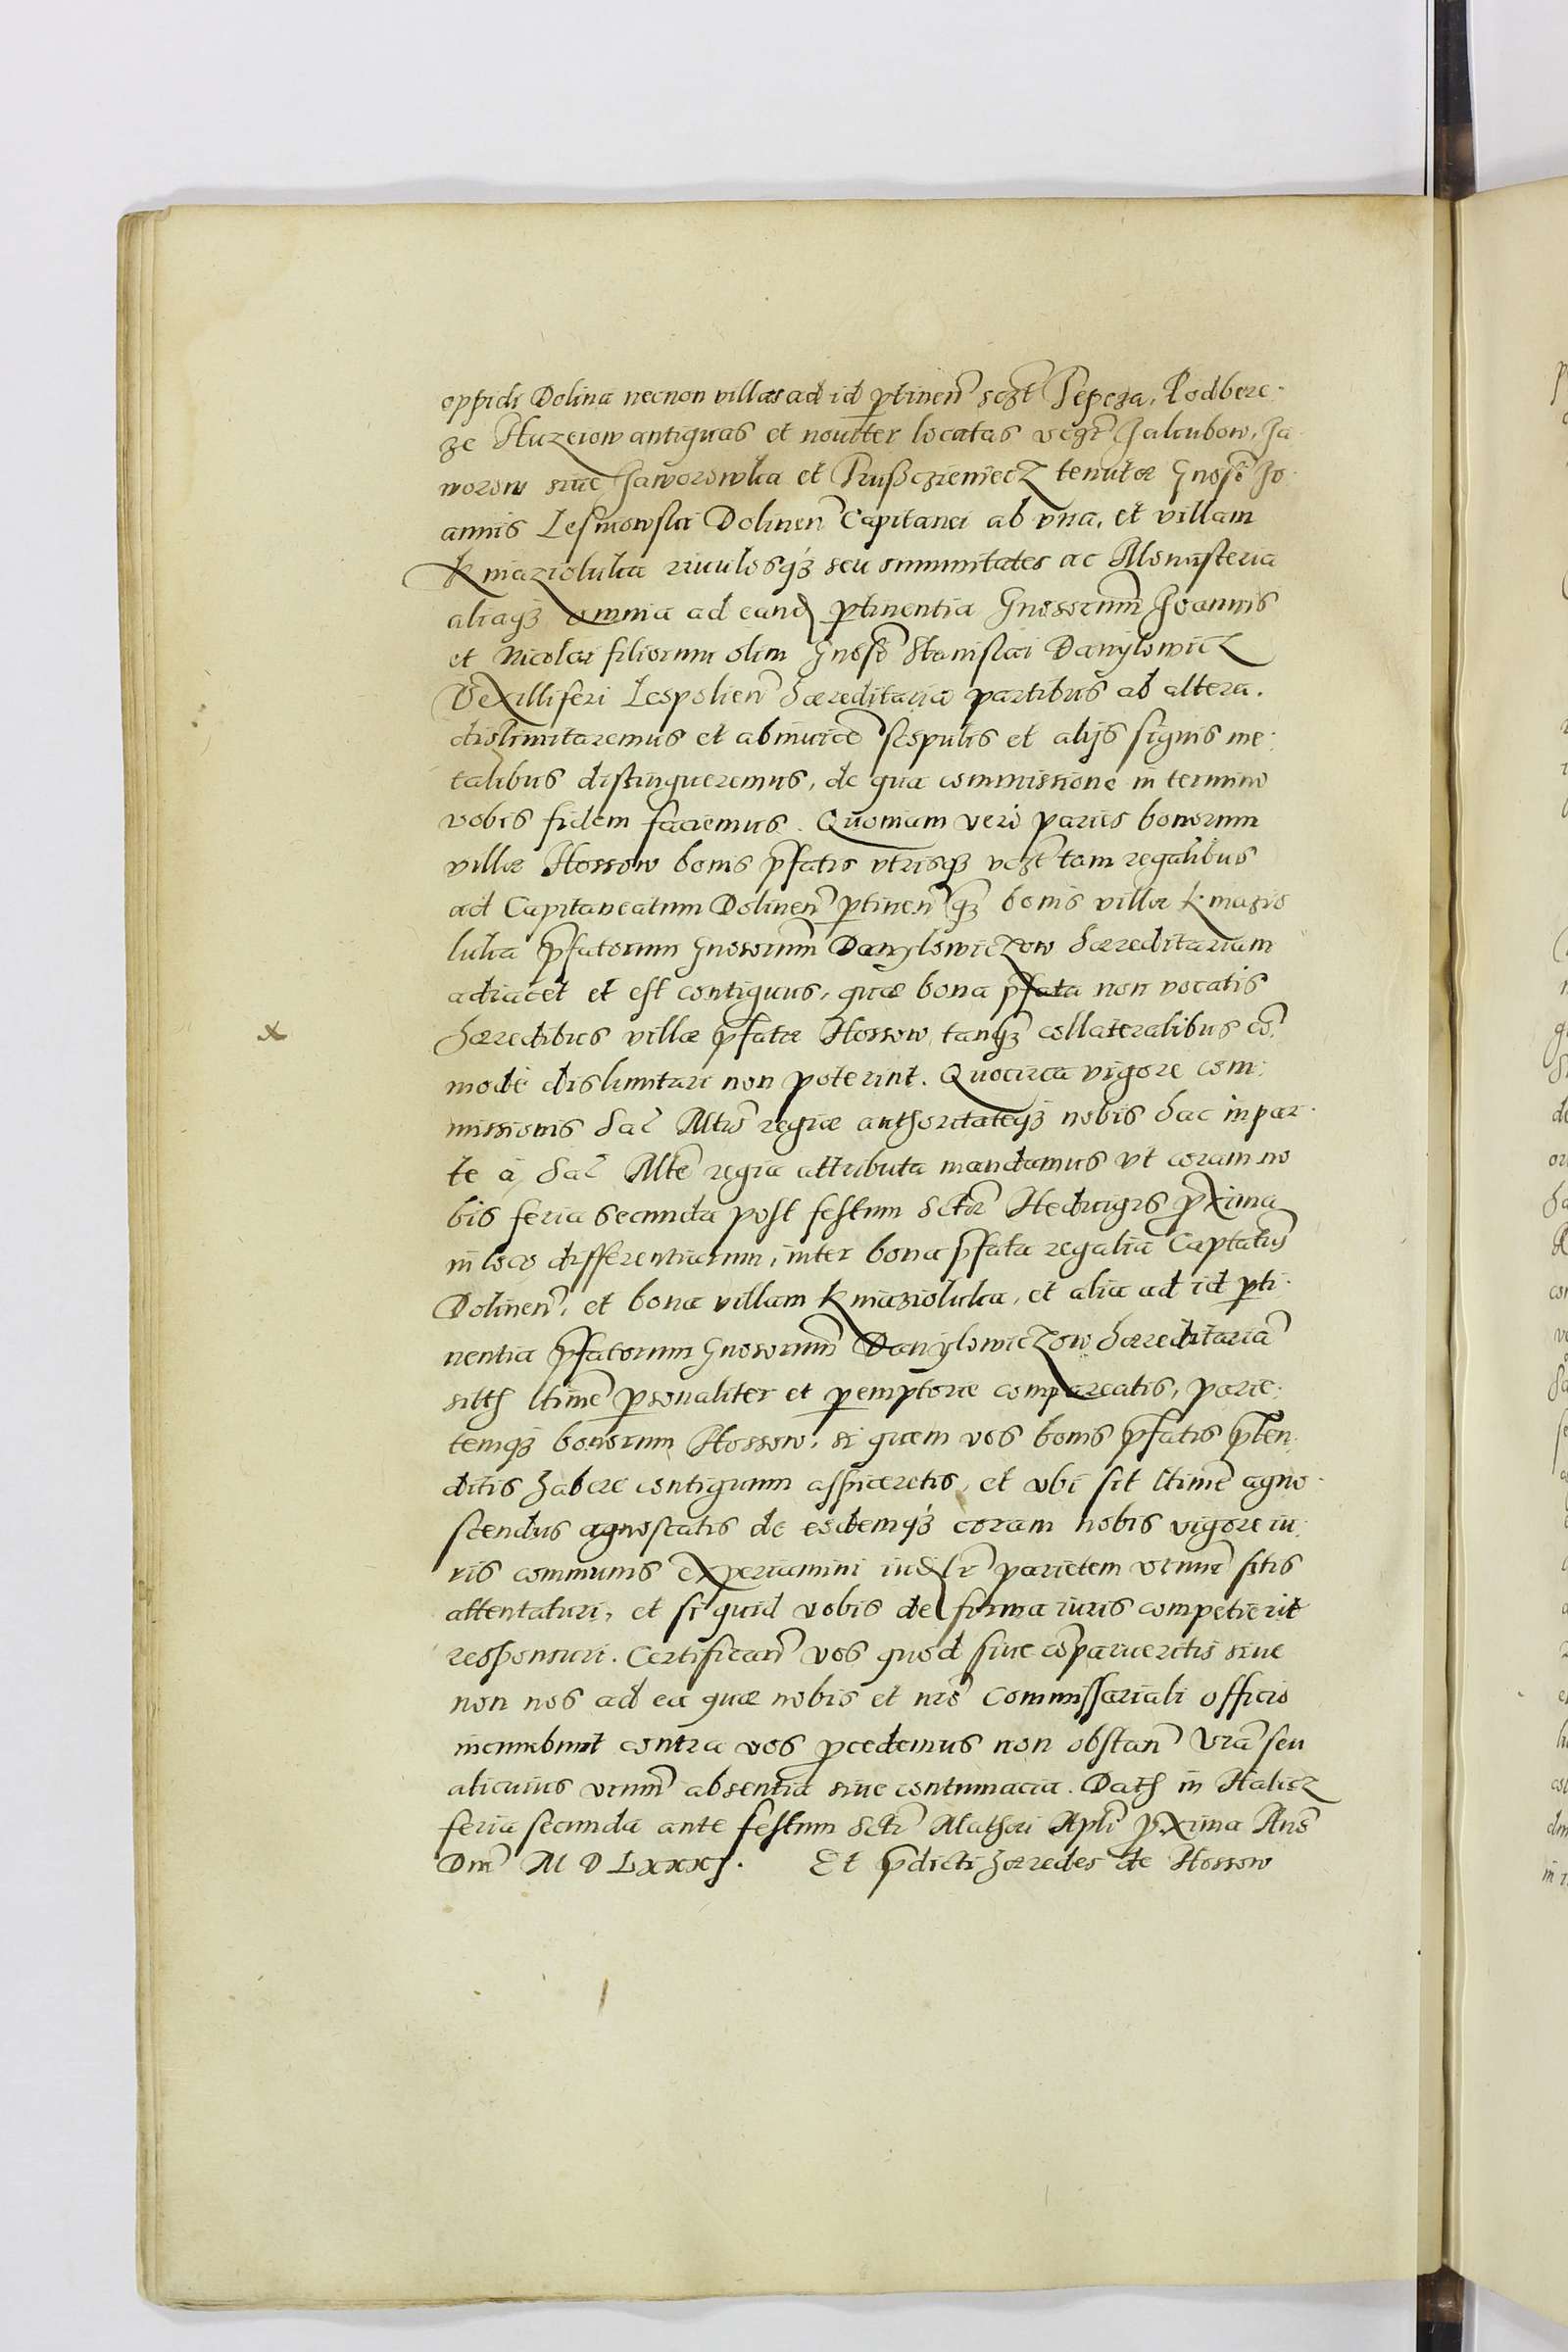 oppidi Dolina necnon villas ad id ptinen̄ sczt Tepcza, Podbere-
ze Huzeiow antiquas et nouiter locatas vczt Jakubow, Ja-
worow siue Jaworowka et Trußczieniecz tenutæ Gnosi Jo-
annis Lesniowski Dolinen̄ Capitanei ab vna, et villam
Kniaziolukа riuulosqꝫ seu immunitates ac Monasteria
aliaqꝫ omnia ad eand ptinentia Gnosorum̄ Joannis
et Nicolai filiorum olim Gnosi Stanislai Danylowicz
Vexilliferi Leopolien̄ hæreditaria partibus ab altera.
dislimitaremus et abinuice scopulis et alijs signis me-
talibus distingueremus, de qua commissione in termino
vobis fidem faciemus. Quoniam verò paries bonorum
villæ Hossow bonis pfatis vtrisqꝫ vczt tam regalibus
ad Capitaneatum Dolinen̄ ptinen̄ qꝫ bonis villæ Kniazio
luka pfatorum Gnosorum̄ Danylowiczow hæreditariam
adiacet et est contiguus, quæ bona pfata non vocatis
x hæredibus villæ pfatæ Hossow, tanqꝫ collateralibus co-
modè dislimitari non poterint. Quocirca vigore com-
missionis Sac Mtis regiæ authoritateqꝫ nobis hac in par-
te à Sac Mte regia attributa mandamus vt coram no
bis feria secunda post festum Sctæ Heduigis pxima
in loco differentiarum, inter bona pfata regalia Captatus
Dolinen̄, et bona villam Kniaziolukа, et alia ad id pti-
nentia pfatorum Gnosorum̄ Danylowiczow hæreditaria
sith ltime psonaliter et pemptorie compareatis, parie-
temqꝫ bonorum Hossow, si quem vos bonis pfatis pten-
ditis habere contiguum aspiceretis, et vbi sit ltime agno-
scendus agnoscatis de eodemqꝫ coram nobis vigore iu-
ris communis experiamini parietem vrum sitis
attentaturi, et si quid vobis de forma iuris competierit
responsuri. Certifican̄ vos quod siue coparueritis siue
non nos ad ea quæ nobis et nro Commissariali officio
incumbunt contra vos pcedemus non obstan̄ vra seu
alicuius vrum̄ absentia siue contumacia. Dath in Halicz
feria secunda ante festum Scti Mathæi Apli pxima Ano
Dni M D Lxxxj. Et pdicti hæredes de Hossow